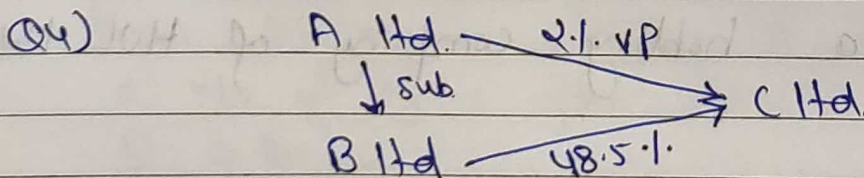 Q4) A ltd. 2% VP
↓ sub. C ltd
B ltd 48.5%